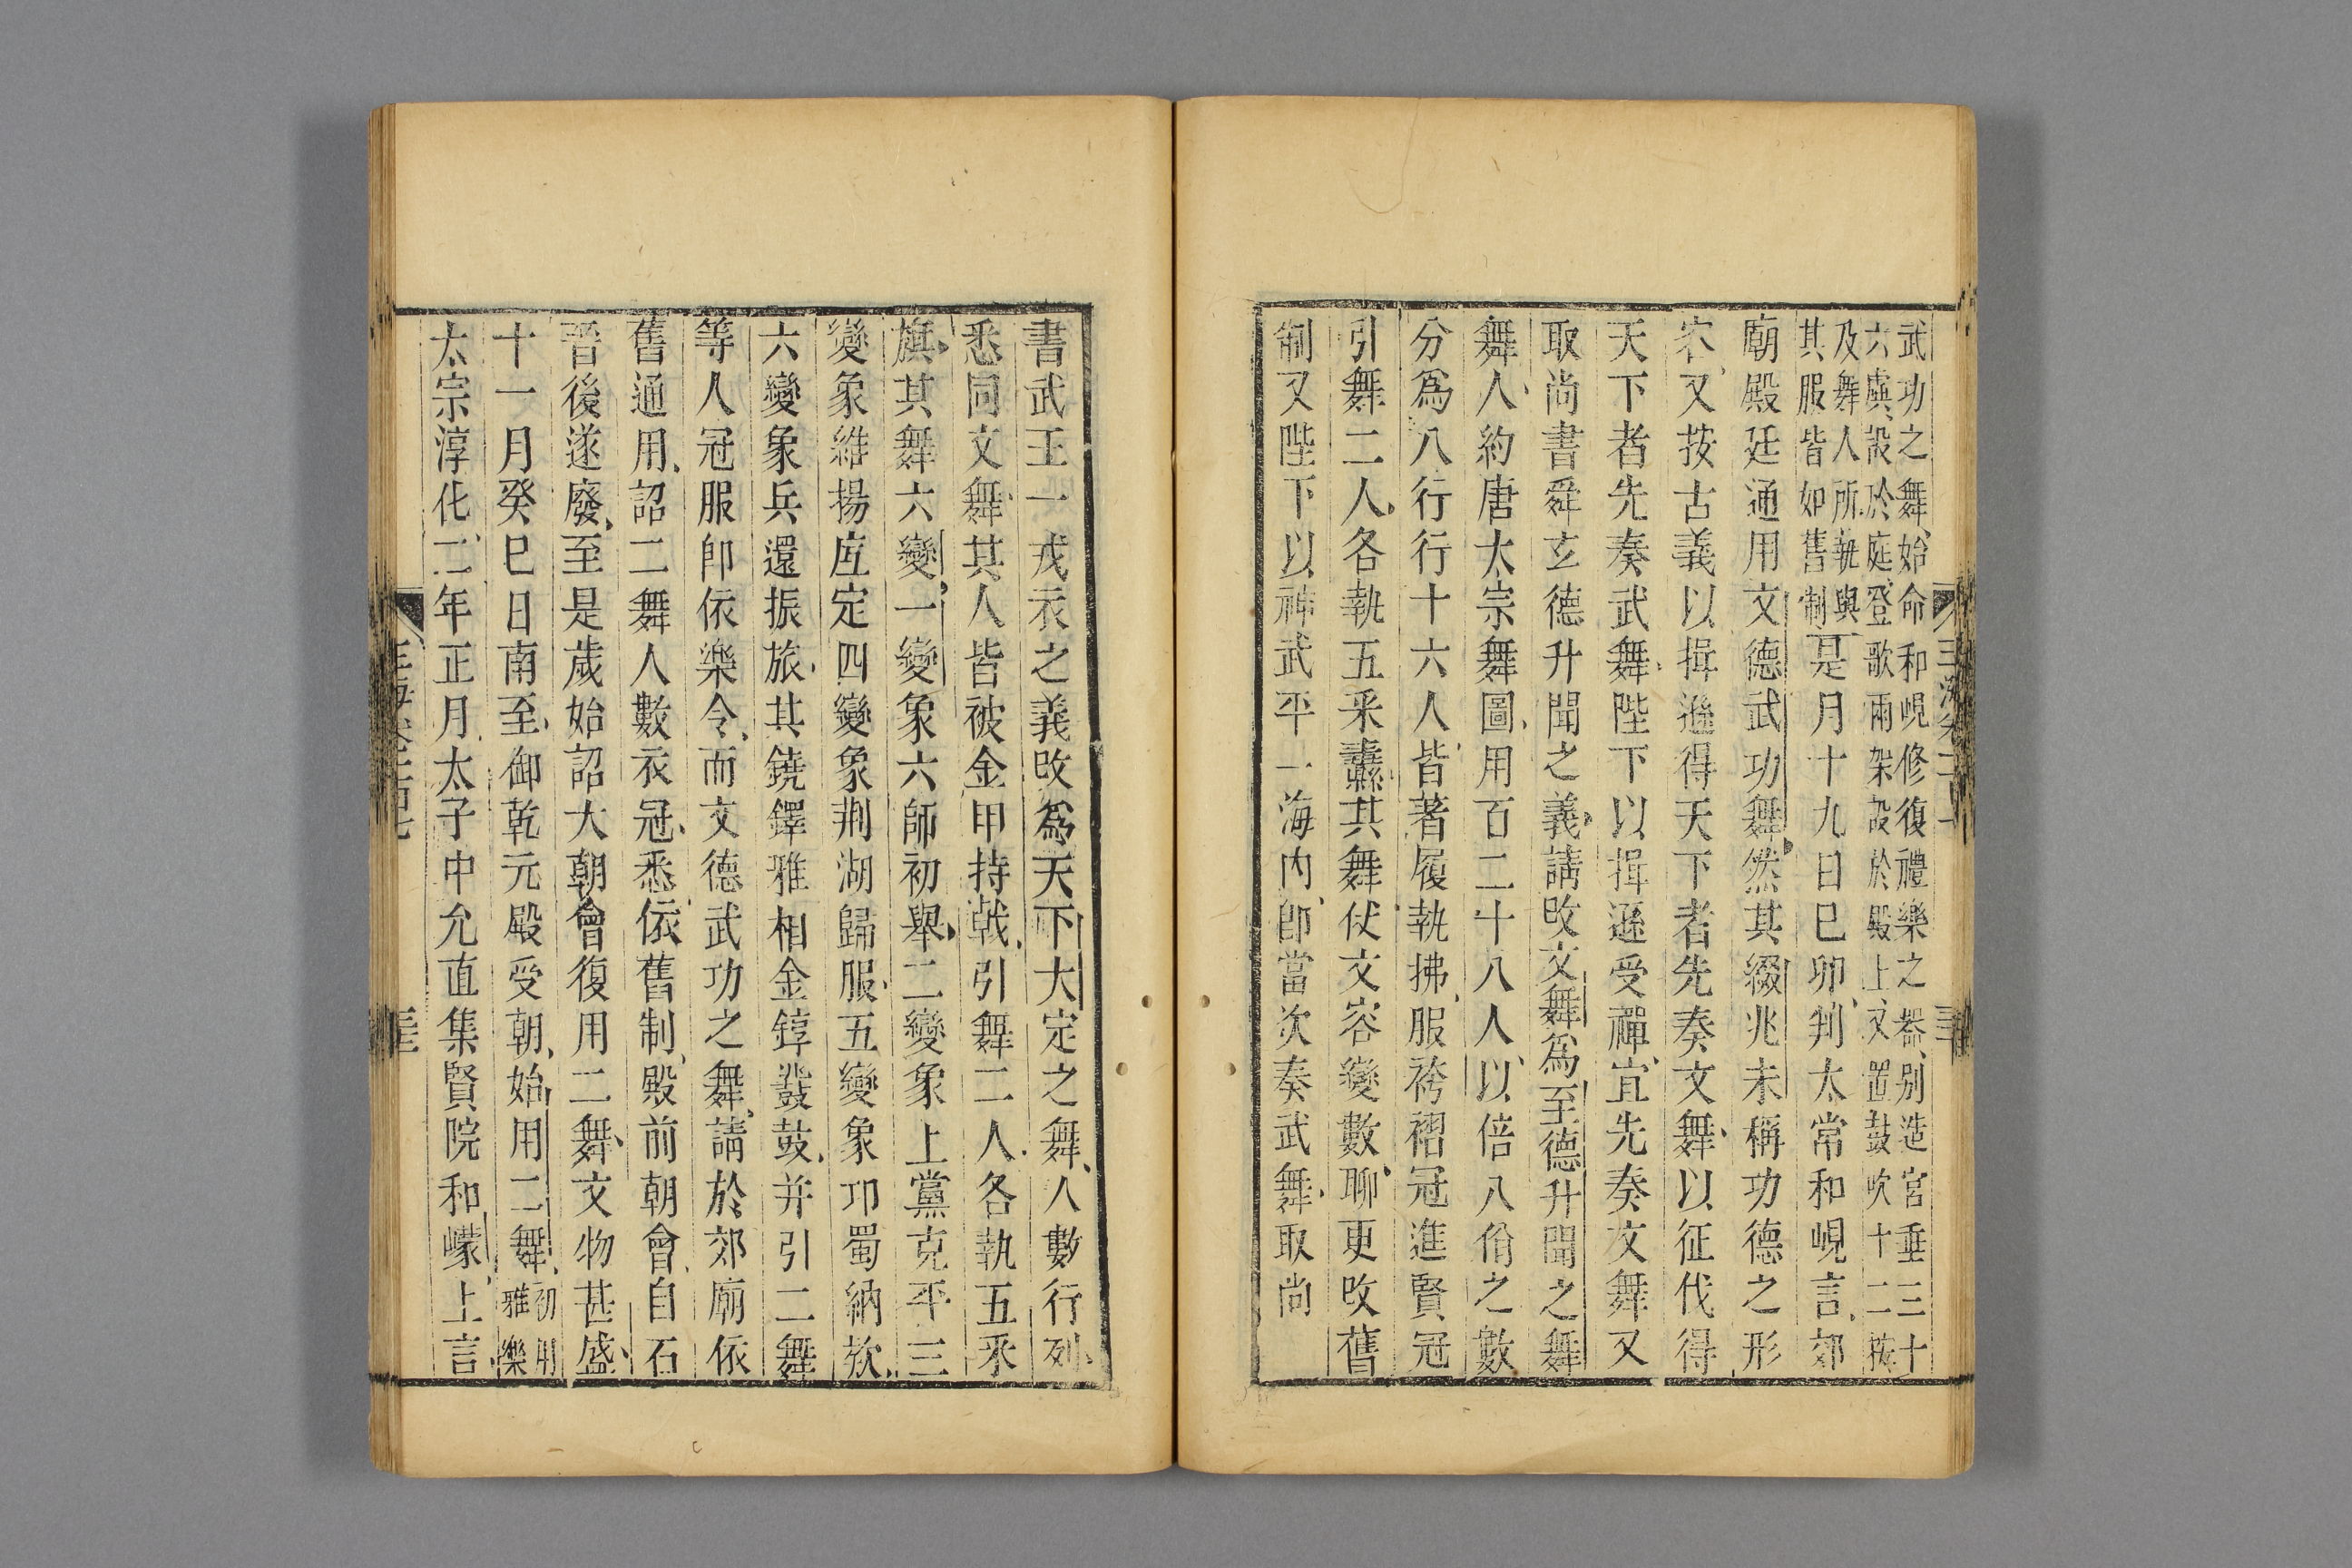 武功之舞始命和峴修復禮樂之器别造宮垂三十
六虡設於庭登歌兩架設於殿上又置鼓吹十二按
及舞人所執與
其服皆如舊制是月十九日巳卯判太常和峴言郊
廟殿廷通用文德武功舞然其綴兆未稱功德之形
容又按古義以揖遜得天下者先奏文舞以征伐得
天下者先奏武舞陛下以揖遜受禪宜先奏文舞又
取尚書舜玄德升聞之義請改文舞爲至德升聞之舞
舞人約唐太宗舞圖用百二十八人以倍八佾之數
分爲八行行十六人皆著履執拂服袴褶冠進賢冠
引舞二人各執五采纛其舞伏文容變數聊更改舊
制又陛下以神武平一海内即當次奏武舞取尚
書武王一戎衣之義改爲天下大定之舞人數行列
悉同文舞其人皆被金甲持戟引舞二人各執五采
旗其舞六變一變象六師初舉二變象上黨克平三
變象維揚底定四變象荆湖歸服五變象邛蜀納款
六變象兵還振旅其鐃鐸雅相金錞鼗鼓并引二舞
等人冠服即依樂令而文德武功之舞請於郊廟依
舊通用詔二舞人數衣冠悉依舊制殿前朝會自石
晋後遂廢至是歲始詔大朝會復用二舞文物甚盛
十一月癸巳日南至御乾元殿受朝始用二舞初用
雅樂
太宗淳化二年正月太子中允直集賢院和㠓上言